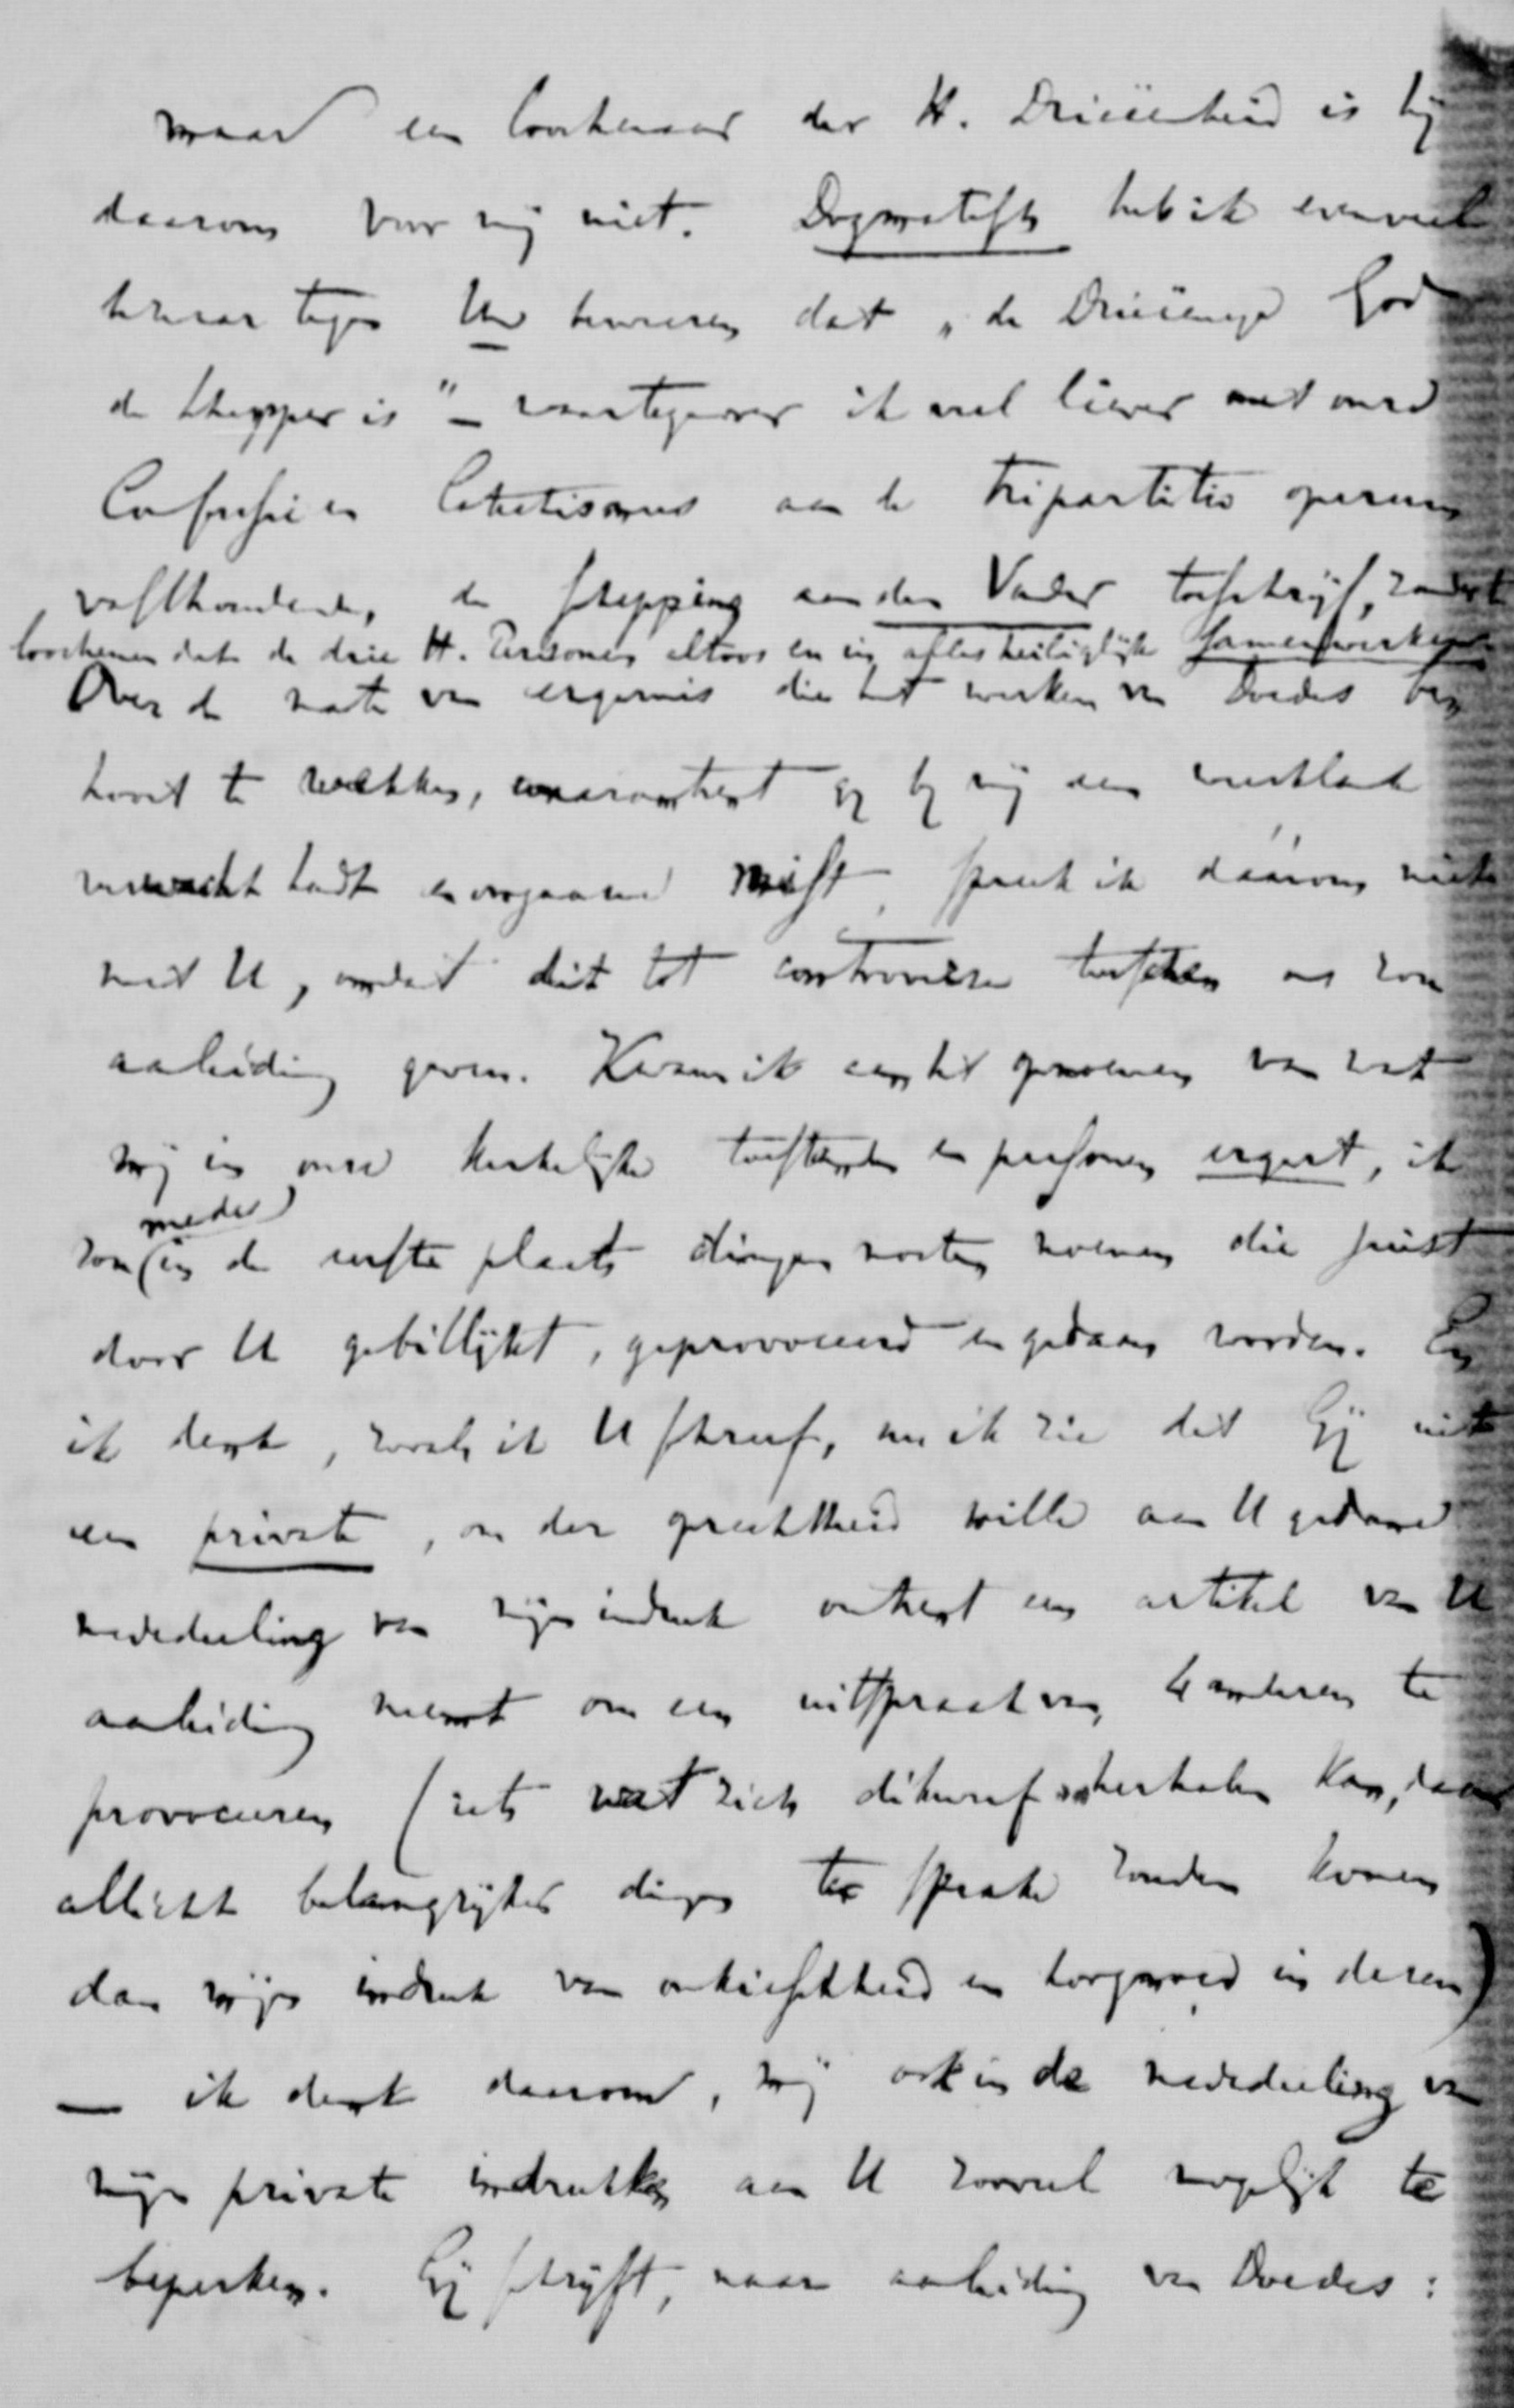 maar een loochenaar der H. Drieëenheid is hij
daarom voor mij niet. Dogmatisch heb ik evenveel
bezwaar tegen Uw beweren dat „de Drieëenige God
de Schepper is" – waartegenover ik veel liever met onze
Confessie en Catechismus aan de tripartitie operum
vasthoudende, de schepping aan den Vader toeschrijf, zonder te
loochenen dat de drie H. Personen altoos en in alles heiliglijk samenwerken.
Over de mate van ergernis die het werken van Doedes be-
hoort te wekken, waaromtrent gij bij mij een weerklank
verwacht hadt en ongaarne mist, spreek ik daarom niet
met U, omdat dit tot controverse tusschen ons zou
aanleiding geven. Kwam ik aan het opnoemen van wat
mij in onze kerkelijke toestanden en personen ergert, ik
zou mede (in de eerste plaats dingen moeten noemen die juist
door U gebillijkt, geprovoceerd en gedaan worden. En
ik denk, zooals ik U schreef, nu ik zie dat Gij uit
een private, om der oprechtheid wille aan U gedane
mededeeling van mijn indruk omtrent een artikel van U
aanleiding neemt om een uitspraak van anderen te
provoceeren (iets wat zich dikwerf herhalen kan, daar
allicht belangrijker dingen ter sprake zouden komen
dan mijn indruk van onkieschheid en hoogmoed in dezen)
— ik denk daarom, mij ook in de mededeeling van
mijn private indrukken aan U zooveel mogelijk te
beperken. Gij schrijft, naar aanleiding van Doedes: